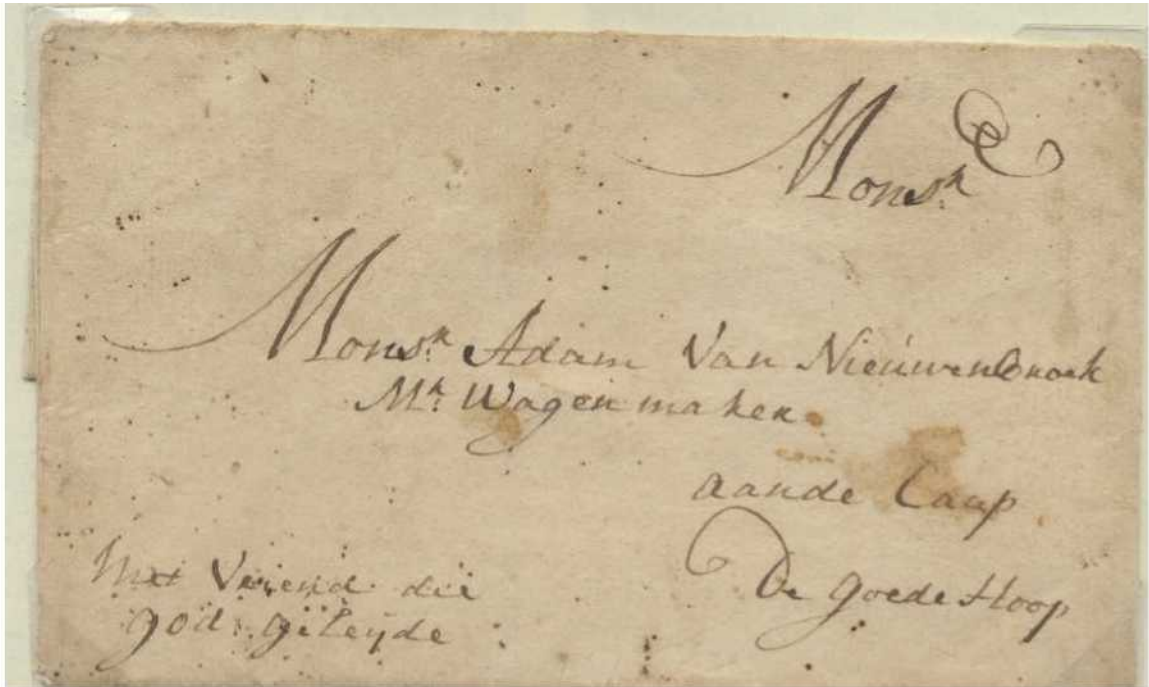 Monsr
Monsr. Adam Van Nieuwenbroek
Mr. Wagenmaker
aande Caap
De goede Hoop
Met Vriend die
god geleijde